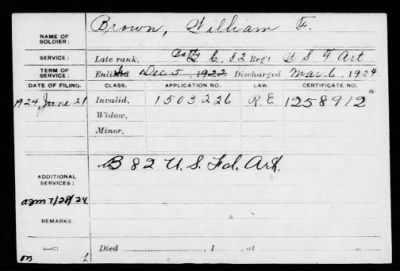 NAME OF SOLDIER: Brown, William F.
SERVICE: Late rank, Batty C, 82 Reg't U S F Art
TERM OF SERVICE: Enlisted Dec. 5, 1922 Discharged Mar. 6, 1924
DATE OF FILING. CLASS. APPLICATION NO. LAW. CERTIFICATE NO.
1924, June 21 Invalid, 1503226 R.E. 1258912
Widow,
Minor,
ADDITIONAL SERVICES: B 82 U.S. Fd. Art.
7/28/24
REMARKS:
Died , 1 , at